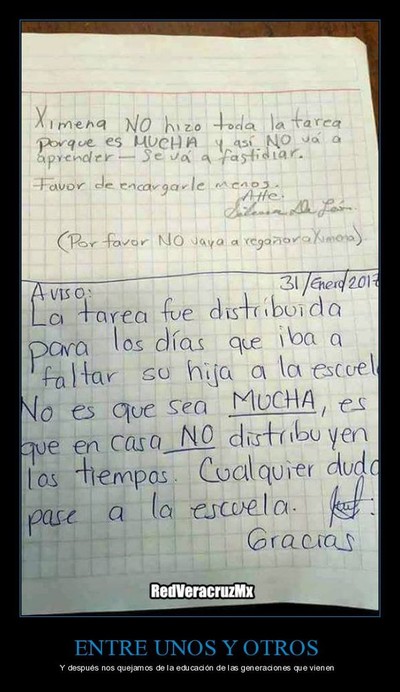 Ximena NO hizo toda la tarea
porque es MUCHA y así NO vá a
aprender — se vá a fastidiar.
Favor de encargarle menos.
Atte.
(Por favor NO vaya a regañar a Ximena)
31/Enero/2017
AVISO:
La tarea fue distribuida
para los días que iba a
faltar su hija a la escuel
No es que sea MUCHA, es
que en casa NO distribuyen
los tiempos. Cualquier duda
pase a la escuela.
Gracias
RedVeracruzMx
ENTRE UNOS Y OTROS
Y después nos quejamos de la educación de las generaciones que vienen